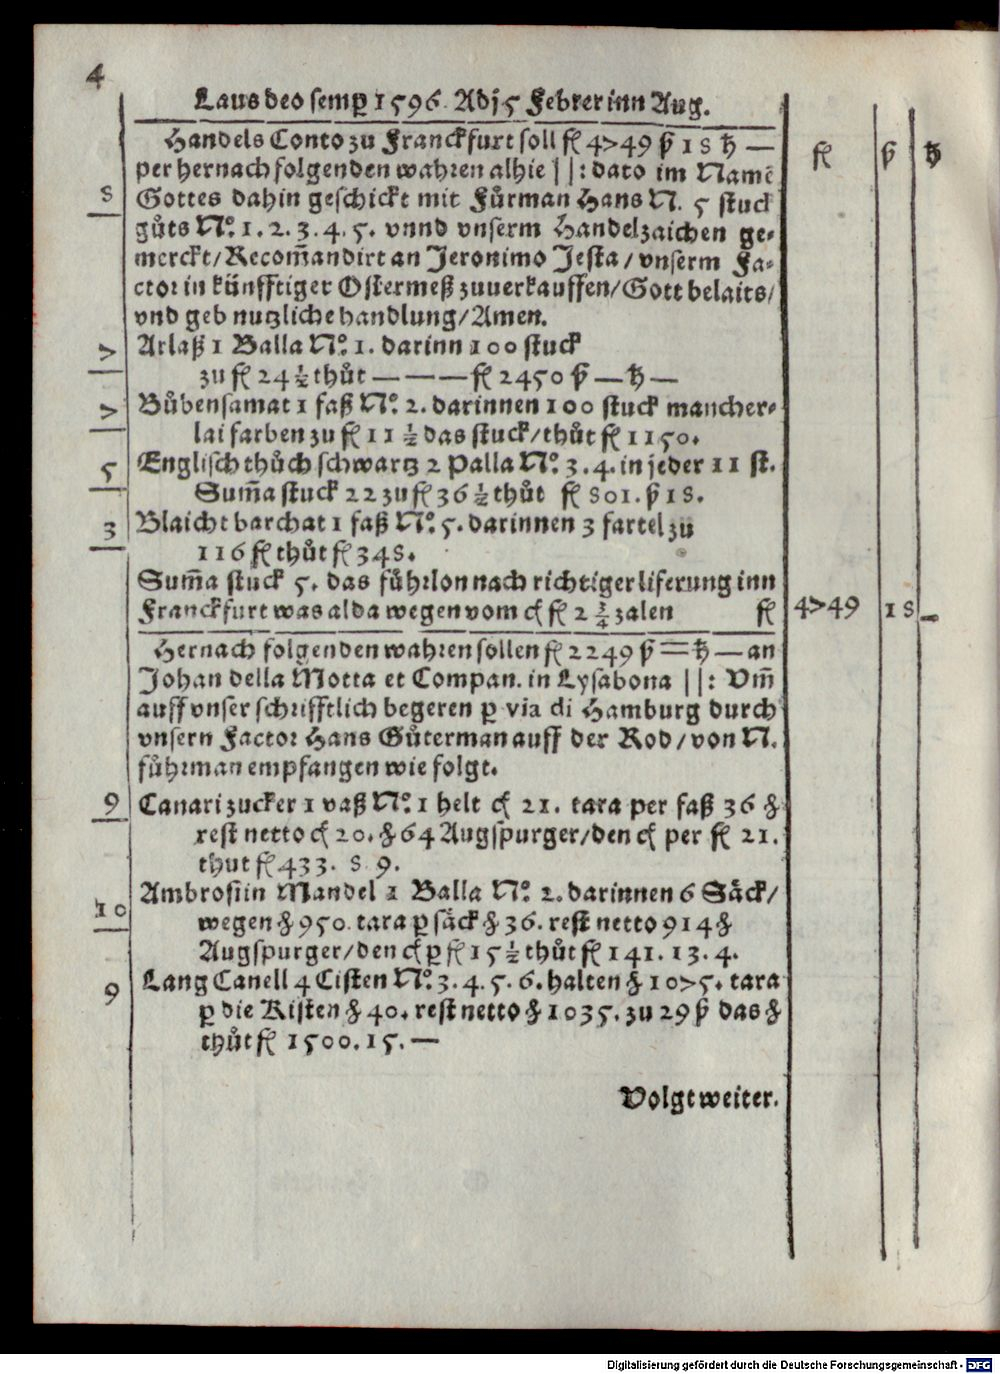 4
Laus deo semp 1596. Adj 5 Febrer inn Aug.
Handels Conto zu Franckfurt soll fl 4749 ß 18 hl —
fl ß hl
per hernach folgenden wahren alhie ||: dato im Namē
8 Gottes dahin geschickt mit Fůrman Hans N. 5 stuck
gůts No. 1. 2. 3. 4. 5. vnnd vnserm Handelzaichen ge-
merckt/Recom̄andirt an Jeronimo Jesta/vnserm Fa-
ctor in künfftiger Ostermeß zuuerkauffen/Gott belaits/
vnd geb nutzliche handlung/Amen.
7 Atlaß 1 Balla No. 1. darinn 100 stuck
zu fl 24 ½ thůt — — — fl 2450 ß — hl —
7 Bůbensamat 1 faß No. 2. darinnen 100 stuck mancher-
lai farben zu fl 11 ½ das stuck/thůt fl 1150.
5 Englisch thůch schwartz 2 Palla No. 3. 4. in jeder 11 st.
Sum̄a stuck 22 zu fl 36 ½ thůt fl 801. ß 18.
3 Blaicht barchat 1 faß No. 5. darinnen 3 fartel zu
116 fl thůt fl 348.
Sum̄a stuck 5. das fůhrlon nach richtiger liferung inn
Franckfurt was alda wegen vom c fl 2 ¾ zalen fl 4749 18 —
Hernach folgenden wahren sollen fl 2249 ß — hl — an
Johan della Motta et Compan. in Lysabona ||: Vm̄
auff vnser schrifftlich begeren p via di Hamburg durch
vnsern Factor Hans Gůterman auff der Rod/von N.
fůhrman empfangen wie folgt.
9 Canari zucker 1 vaß No. 1 helt c 21. tara per faß 36 ℔
rest netto c 20. ℔ 64 Augspurger/den c per fl 21.
thut fl 433. 8 9.
10 Ambrosiin Mandel 1 Balla No. 2. darinnen 6 Säck/
wegen ℔ 950. tara p säck ℔ 36. rest netto 914 ℔
Augspurger/den c p fl 15 ½ thůt fl 141. 13. 4.
9 Lang Canell 4 Cisten No. 3. 4. 5. 6. halten ℔ 1075. tara
p die Kisten ℔ 40. rest netto ℔ 1035. zu 29 ß das ℔
thůt fl 1500. 15. —
Volgt weiter.
Digitalisierung gefördert durch die Deutsche Forschungsgemeinschaft - DFG